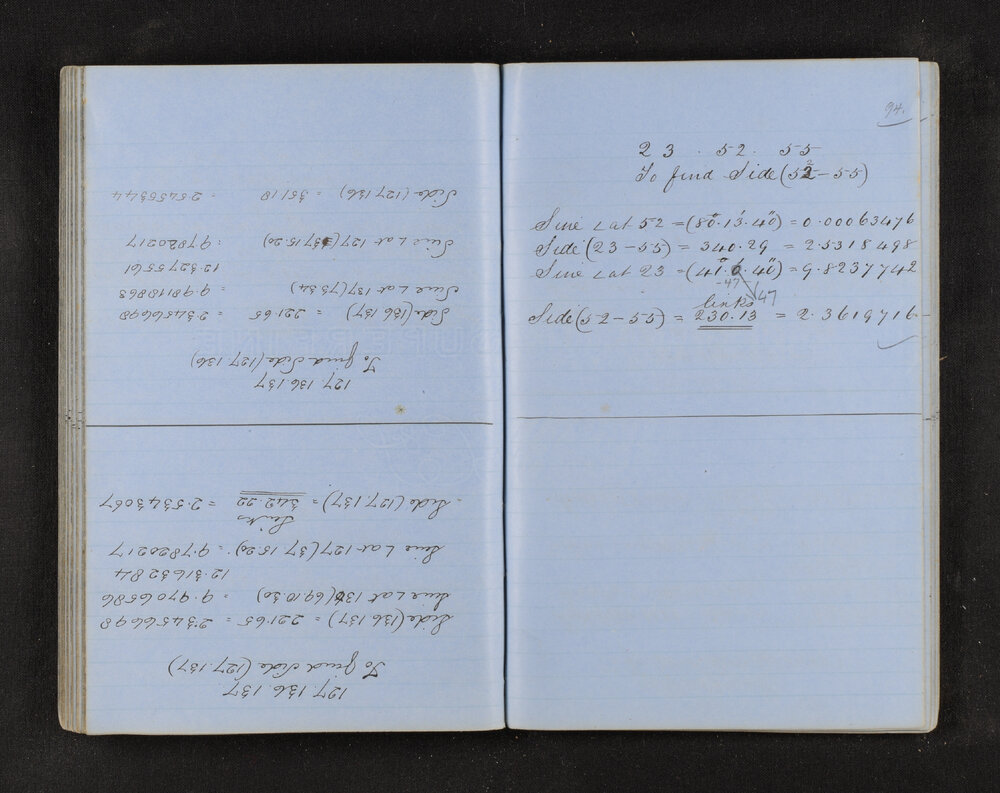 127.136.137
To find Side (127.137)
Side (136 137) = 221.65 = 2.3456698
Sine ∠ at 136 (69.10.30) = 9.9706586
12.3163284
Sine ∠ at 127 (37 15 20) = 9.7820217
Links
= Side (127.137) = 342.22 = 2.5343067
127 136.137
To find Side (127 136)
Side (136 137) = 221.65 = 2.3456698
Sine ∠ at 137 (73 34) = 9.98118863
12.3275561
Sine ∠ at 127 (37 15.20) = 9.7820217
Side (127 136) = 351.18 = 2.5455344
94.
23 . 52 . 55
To find Side (52 - 55)
Sine ∠ at 52 = (80°.13'.40") = 0.00063476
Side (23 - 55) = 340.29 = 2.5318498
Sine ∠ at 23 = (41°.6'.40") = 9.8237742
-47 47
links
Side (52 - 55) = 230.13 = 2.3619716